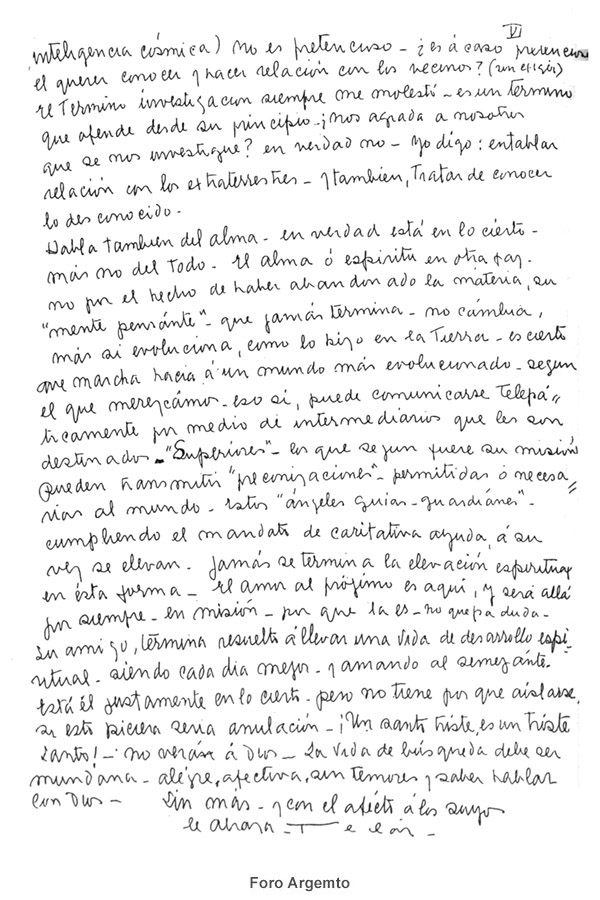 VI
inteligencia cósmica) no es pretencioso - ¿es á caso pretencioso
el querer conocer y hacer relación con los vecinos? (sin exigir)
El Termino investigacion siempre me molestó - es un término
que ofende desde su principio - ¿nos agrada a nosotros
que se nos investigue? en verdad no - Yo digo: entablar
relación con los extraterrestres - y tambien, Tratar de conocer
lo desconocido -
Habla tambien del alma - en verdad está en lo cierto -
más no del Todo - El alma ó espiritu en otra faz -
no por el hecho de haber abandonado la materia, su
"mente pensánte" - que jamás términa - no cámbia,
más si evoluciona, como lo hizo en la Tierra - es cierto
que marcha hacia á un mundo más evolucionado - segun
el que merezcámos - eso si, puede comunicarse Telepá=
ticamente por medio de intermediarios que les son
destinados - "Superiores" - los que segun fuere su misión
pueden transmitir "preconizaciones" - permitidas ó necesa=
rias al mundo - estos "ángeles guias - guardiánes" -
cumpliendo el mandato de caritativa ayuda, á su
vez se elevan - Jamás se termina a la elevación espiritual
en ésta forma - El amor al prójimo es aqui, y será allá
por siempre - en misión - por que la es - no quepa duda -
Su amigo, términa resuelto á llevar una vida de desarrollo espi-
ritual - siendo cada dia mejor - y amando al semejánte -
Está él justamente en lo cierto - pero no tiene por que aislarse,
si esto hiciera seria anulación - ¡Un santo triste, es un triste
santo! - no verás á Dios - La vida de búsqueda debe ser
mundána - alégre, afectiva, sin temores y saber hablar
con Dios - Sin más - y con el afécto á los suyos
le abraza -
Foro Argemto